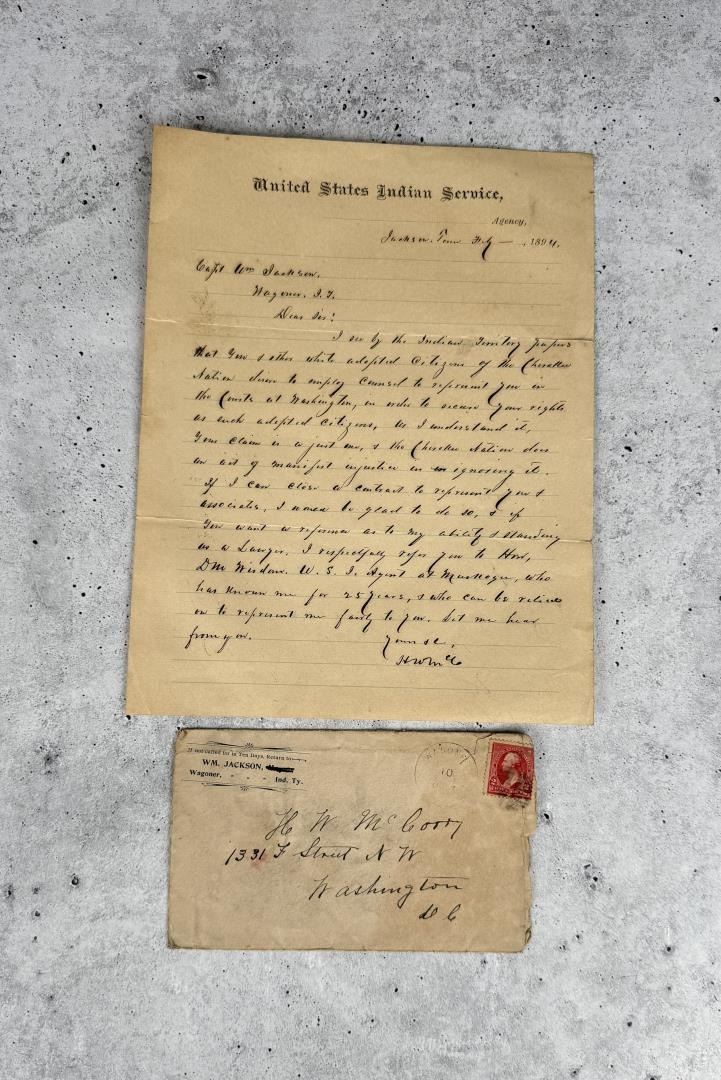 United States Indian Service,
Agency,
Jackson, Tenn Feby — , 1894.
Capt Wm Jackson.
Wagoner. I. T.
Dear Sir:
I see by the Indian Territory papers
that you & other white adopted Citizens of the Cherokee
Nation desire to employ Counsel to represent you in
the Courts at Washington, in order to secure your rights
as such adopted Citizens, as I understand it,
Your claim is a just one, & the Cherokee Nation does
an act of manifest injustice in ignoring it.
If I can close a contract to represent you &
associates, I would be glad to do so, & if
you want a reference as to my ability & standing
as a Lawyer, I respectfully refer you to Hon,
D M Wisdom. U. S. I. Agent at Muskogee, who
has known me for 25 years, & who can be relied
on to represent me fairly to you. Let me hear
from you.
Yours &c,
H W McC
If not called for in Ten Days, Return to
WM. JACKSON,
Wagoner, - - - Ind. Ty.
10
2 2
H W McCoory
1331 F Street N W
Washington
D C